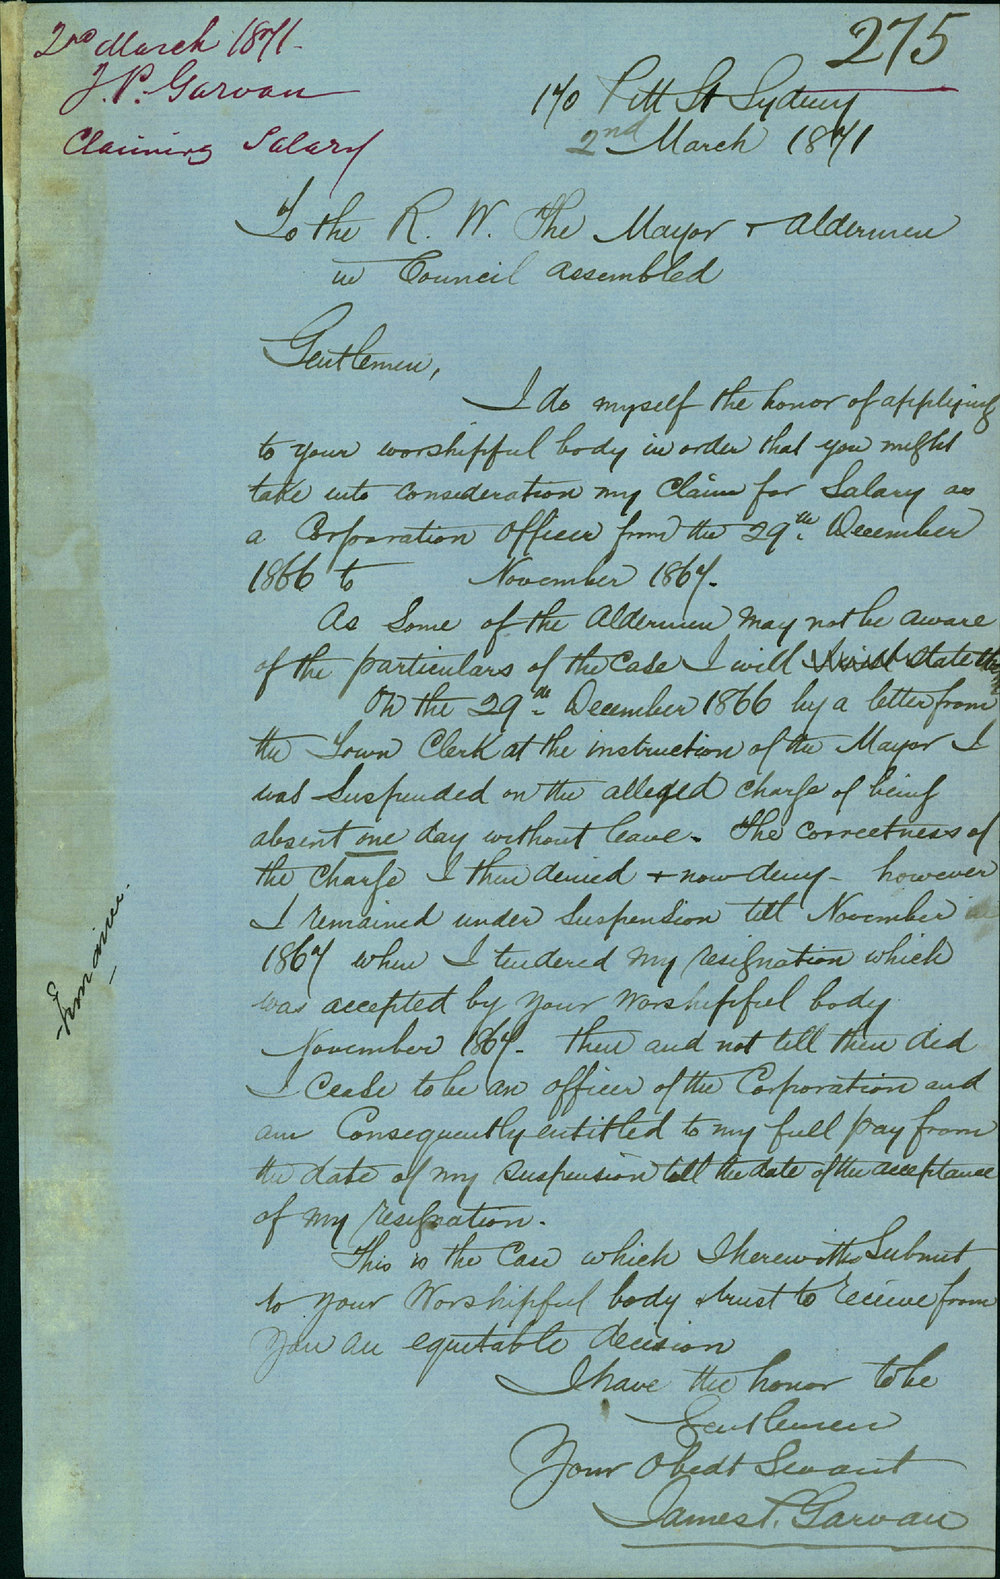 275
2nd March 1871.
J. P. Garvan
Claiming Salary
170 Pitt St Sydney
2nd March 1871
To the R. W. The Mayor & Aldermen
in Council assembled
Gentlemen,
I do myself the honor of applying
to your worshipful body in order that you might
take into consideration my claim for Salary as
a Corporation Officer from the 29th December
1866 to November 1867.
As Some of the Aldermen may not be aware
of the particulars of the Case I will state them
On the 29th December 1866 by a letter from
the Town Clerk at the instruction of the Mayor I
was Suspended on the alleged charge of being
absent one day without leave. The correctness of
the charge I then denied & now deny - however
I remained under Suspension till November in
1867 when I tendered my resignation which
was accepted by your Worshipful body
November 1867. then and not till then did
I cease to be an officer of the Corporation and
am Consequently entitled to my full pay from
the date of my suspension till the date of the acceptance
of my resignation.
This is the Case which I herewith Submit
to your Worshipful body & trust to receive from
you an equitable decision
I have the honor to be
Gentlemen
Your Obedt Servant
James P. Garvan